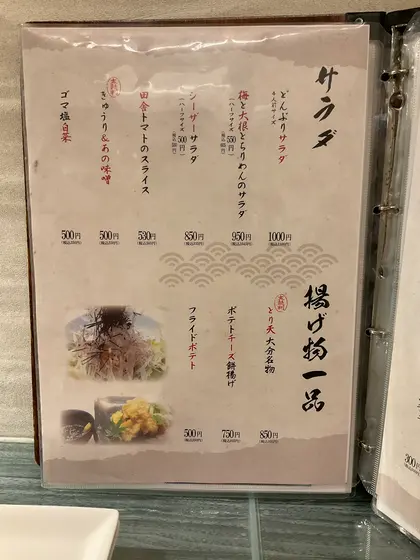 サラダ
どんぶりサラダ
4人前サイズ
1000円
梅と大根とちりめんのサラダ
(ハーフサイズ 550円
950円
シーザーサラダ
(ハーフサイズ 500円
850円
田舎トマトのスライス
530円
きゅうり&あの味噌
500円
ゴマ塩白菜
500円
揚げ物一品
とり天 大分名物
850円
ポテトチーズ餅揚げ
750円
フライドポテト
500円
300円